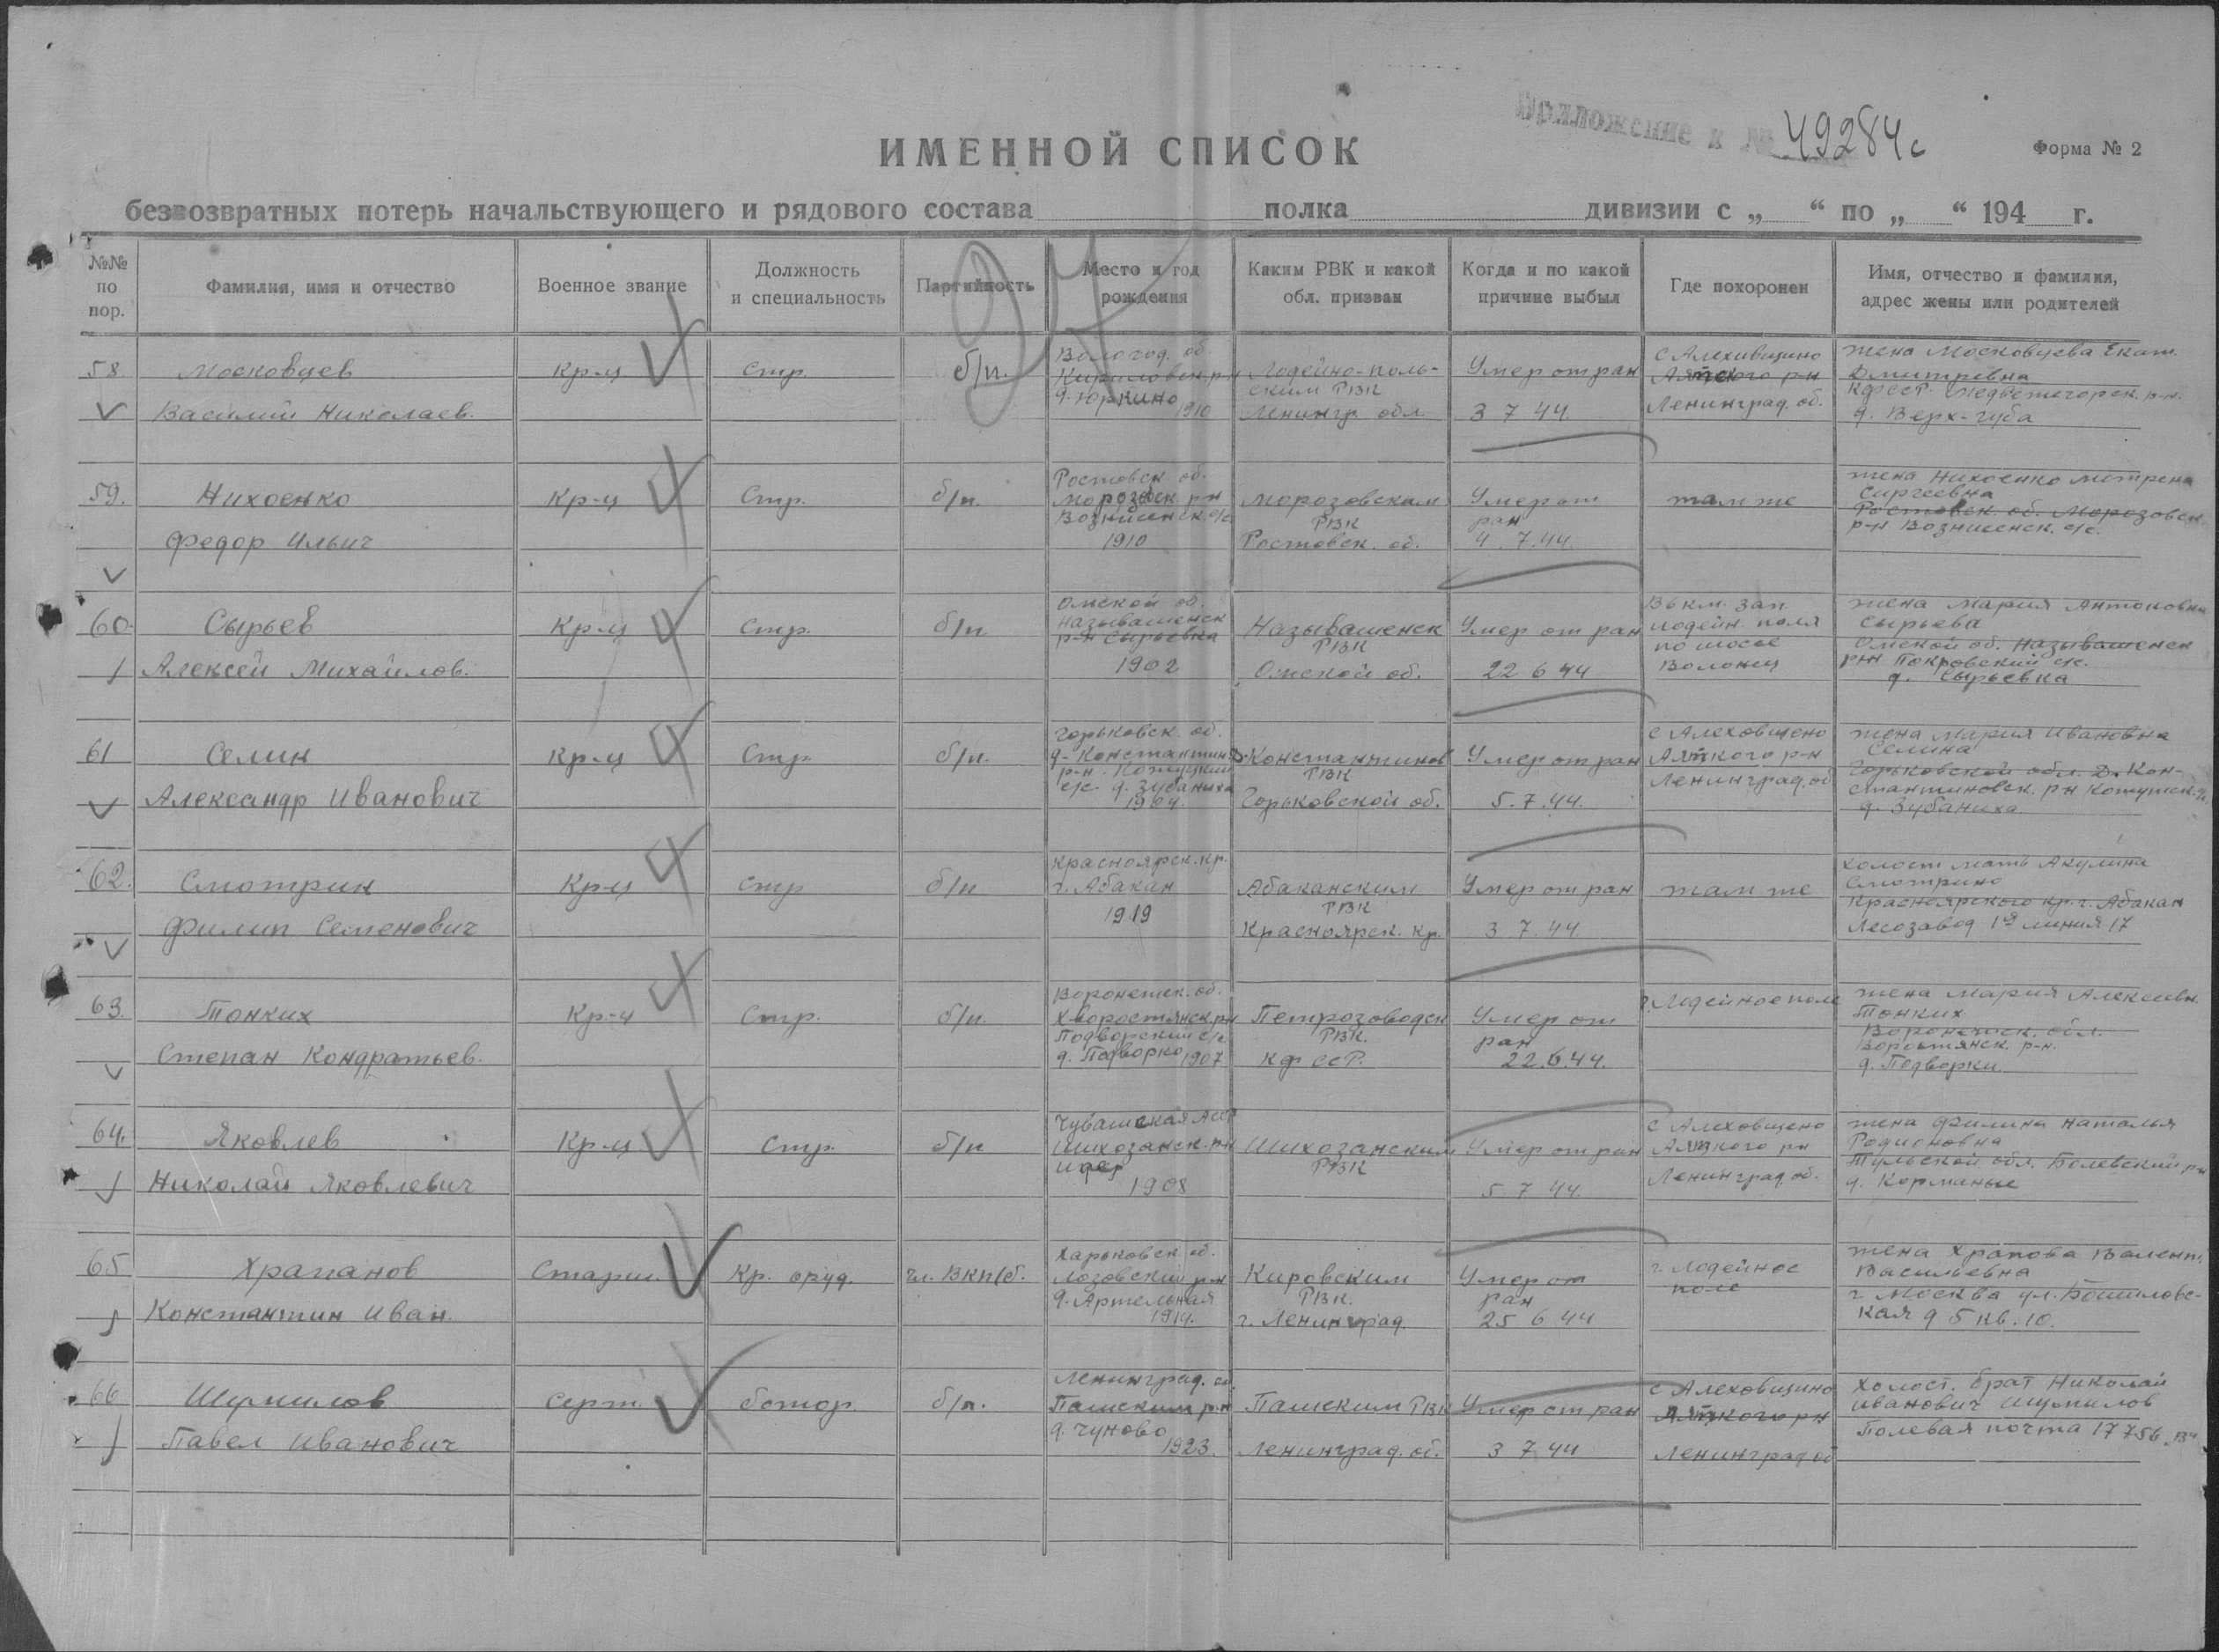 Приложение к № 49284с
ИМЕННОЙ СПИСОК
Форма № 2
безвозвратных потерь начальствующего и рядового состава полка дивизии с „ “ по „ “ 194 г.
№№ по пор.
Фамилия, имя и отчество
Военное звание
Должность и специальность
Партийность
Место и год рождения
Каким РВК и какой обл. призван
Когда и по какой причине выбыл
Где похоронен
Имя, отчество и фамилия, адрес жены или родителей
58
Московцев
Василий Николаев.
Кр-ц
Стр.
б/п.
Вологод. об.
Кириловск. р-н
д. Юркино
1910
Лодейно-поль-
ским РВК
Ленингр. обл.
Умер от ран
3 7 44
с Алеховщино
р-н
Ленинград. об.
жена Московцева Екат.
Дмитревна
КФССР Медвежегорск. р-н.
д. Верх-губа
59.
Нихоенко
Федор Ильич
Кр-ц
Стр.
б/п.
Ростовск об.
Морозовск р-н
с/с.
1910
Морозовским
РВК
Ростовск. об.
Умер от
ран
4. 7.44.
там же
жена Нихоенко Матрена
Сиргеевна
Ростовск об. Морозовск.
р-н с/с.
60.
Сырьев
Алексей Михайлов.
Кр-ц
Стр.
б/п
Омской об.
Называевенск
р-н Сырьевка
1902
Называшенск
РВК
Омской об.
Умер от ран
22 6 44
В 6 км. зап.
Лодейн. поля
по шосее
Волонец
жена Мария Антоновна
Сырьева
Омской об. Называшенск
р-н Покровский с/с.
д. Сырьевка
61
Селин
Александр Иванович
Кр-ц
Стр.
б/п.
Горьковск. об.
д-Константин.
р-н.
с/с. д. Зубаниха
1904.
Д-Константинов
РВК
Горьковской об.
Умер от ран
5.7.44.
с Алеховщено
р-н
Ленинград. об
жена Мария Ивановна
Селина
Горьковской обл. Д. Кон-
стантиновск. р-н
д. Зубаниха.
62.
Смотрин
Филип Семенович
Кр-ц
стр
б/п
Красноярск. кр.
г. Абакан
1919
Абаканским
РВК
Красноярск. кр.
Умер от ран
3 7 44
там же
холост мать Акулина
Смотрино
Красноярского кр. г. Абакан
Лесозавод 1я линия 17
63.
Тонких
Степан Кондратьев.
Кр-ц
Стр.
б/п.
Воронежск. об.
Хворостянск р-н
Подворский с/с
д. Подворко 1907
Петрозоводск
РВК.
КФССР.
Умер от
ран
22.6.44.
г. Лодейное поле
жена Мария Алексеевн.
Тонких
Воронежск. обл.
р-н.
д. Подворки.
64.
Яковлев
Николай Яковлевич
Кр-ц
Стр.
б/п
Чувашская АССР
Шихозанск. р-н
1908
Шихозанским
РВК
Умер от ран
5 7 44.
с Алеховщено
р-н
Ленинград. об.
жена Филина Наталья
Родионовна
Тульской обл. Белевский р-н
д.
65
Храпанов
Константин Иван.
Старш.
Кр. оруд.
чл. ВКП(б).
Харьковск об.
Лозовский р-н
д. Артельная
1914.
Кировским
РВК.
г. Ленинград.
Умер от
ран
25 6 44
г. Лодейное
поле
жена Храпова Валент.
Васильевна
г Москва ул.
кая д 5 кв. 10.
66
Шумилов
Павел Иванович
Серж.
б/п.
Ленинград. об.
Пашским р-н
д. Чуново
1923.
Пашским РВК
Ленинград. об.
Умер от ран
3 7 44
с Алеховщино
р-н
Ленинград об
холост. брат Николай
Иванович Шумилов
Полевая почта 17756